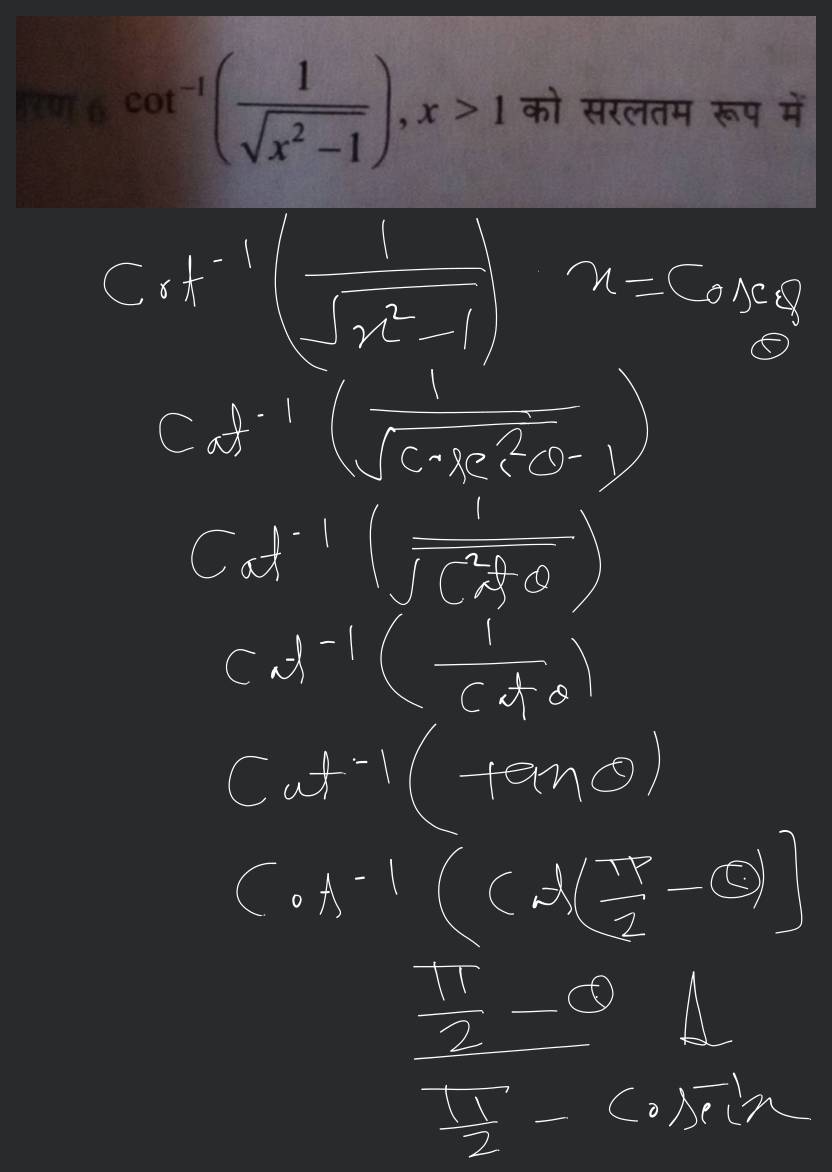 रण 6 cot⁻¹(1/√(x² – 1)), x > 1 को सरलतम रूप में
Cot⁻¹(1/√(x² – 1)) x = Cosec θ
Cot⁻¹(1/√(cosec²θ – 1))
Cot⁻¹(1/√(Cot²θ))
Cot⁻¹(1/Cot θ)
Cot⁻¹(tan θ)
Cot⁻¹(Cot(π/2 – θ)]
π/2 – θ
π/2 – Cosec⁻¹x